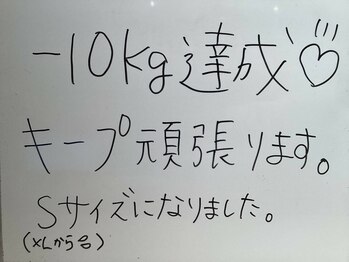 -10kg達成♡
キープ頑張ります。
Sサイズになりました。
(XLから